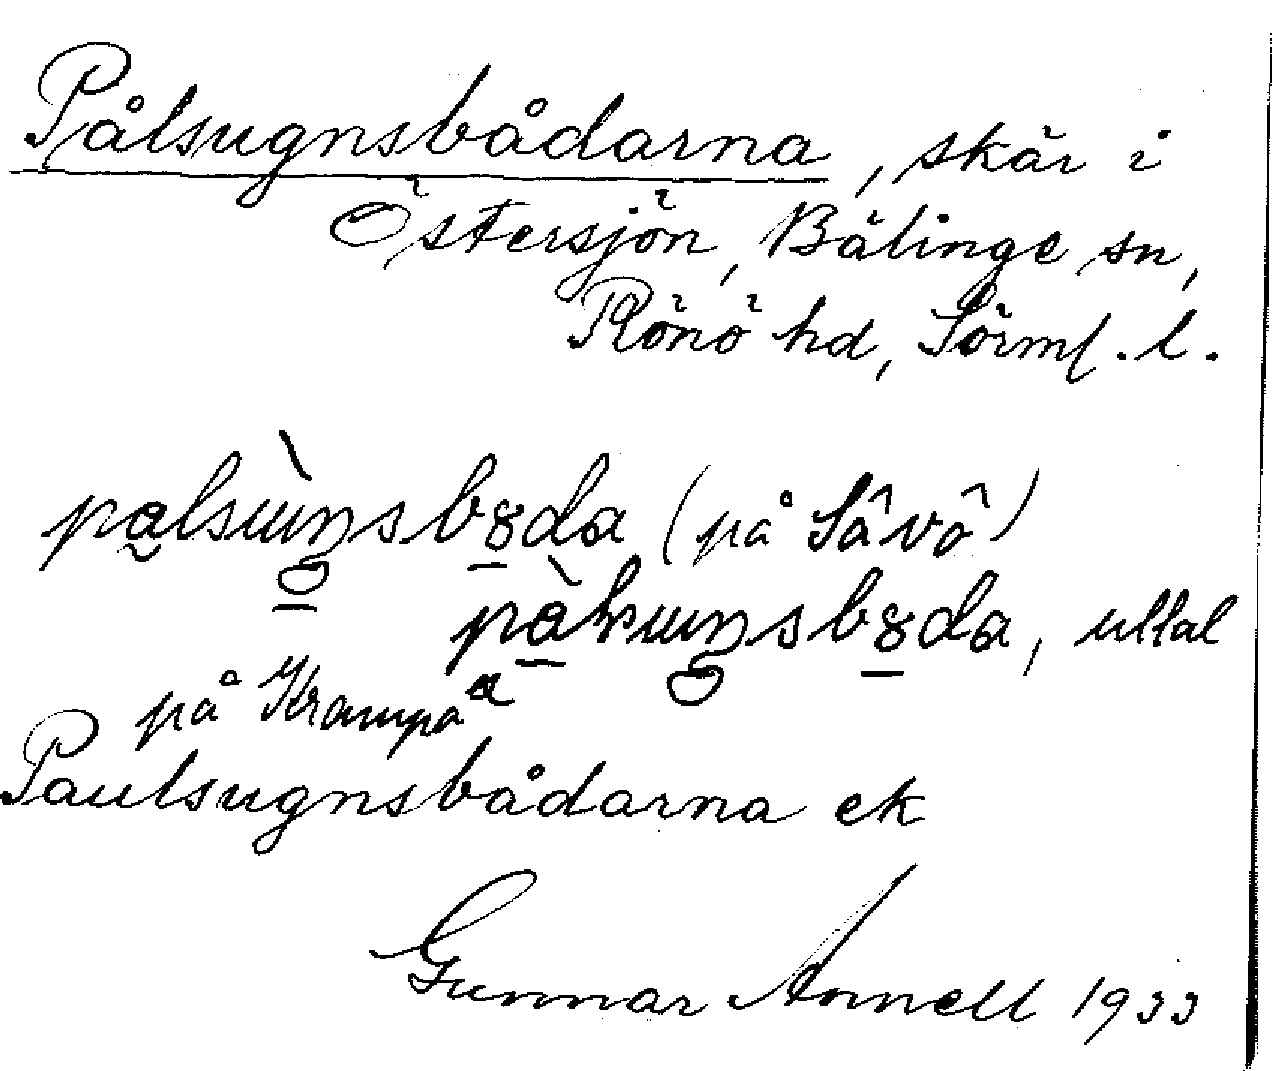 Pålsugnsbådarna, skär i
Östersjön, Bälinge sn,
Rönö hd, Sörml. l.
(på Sävö)
uttal
på Krampö
Paulsugnsbådarna ek
Gunnar Annell 1933